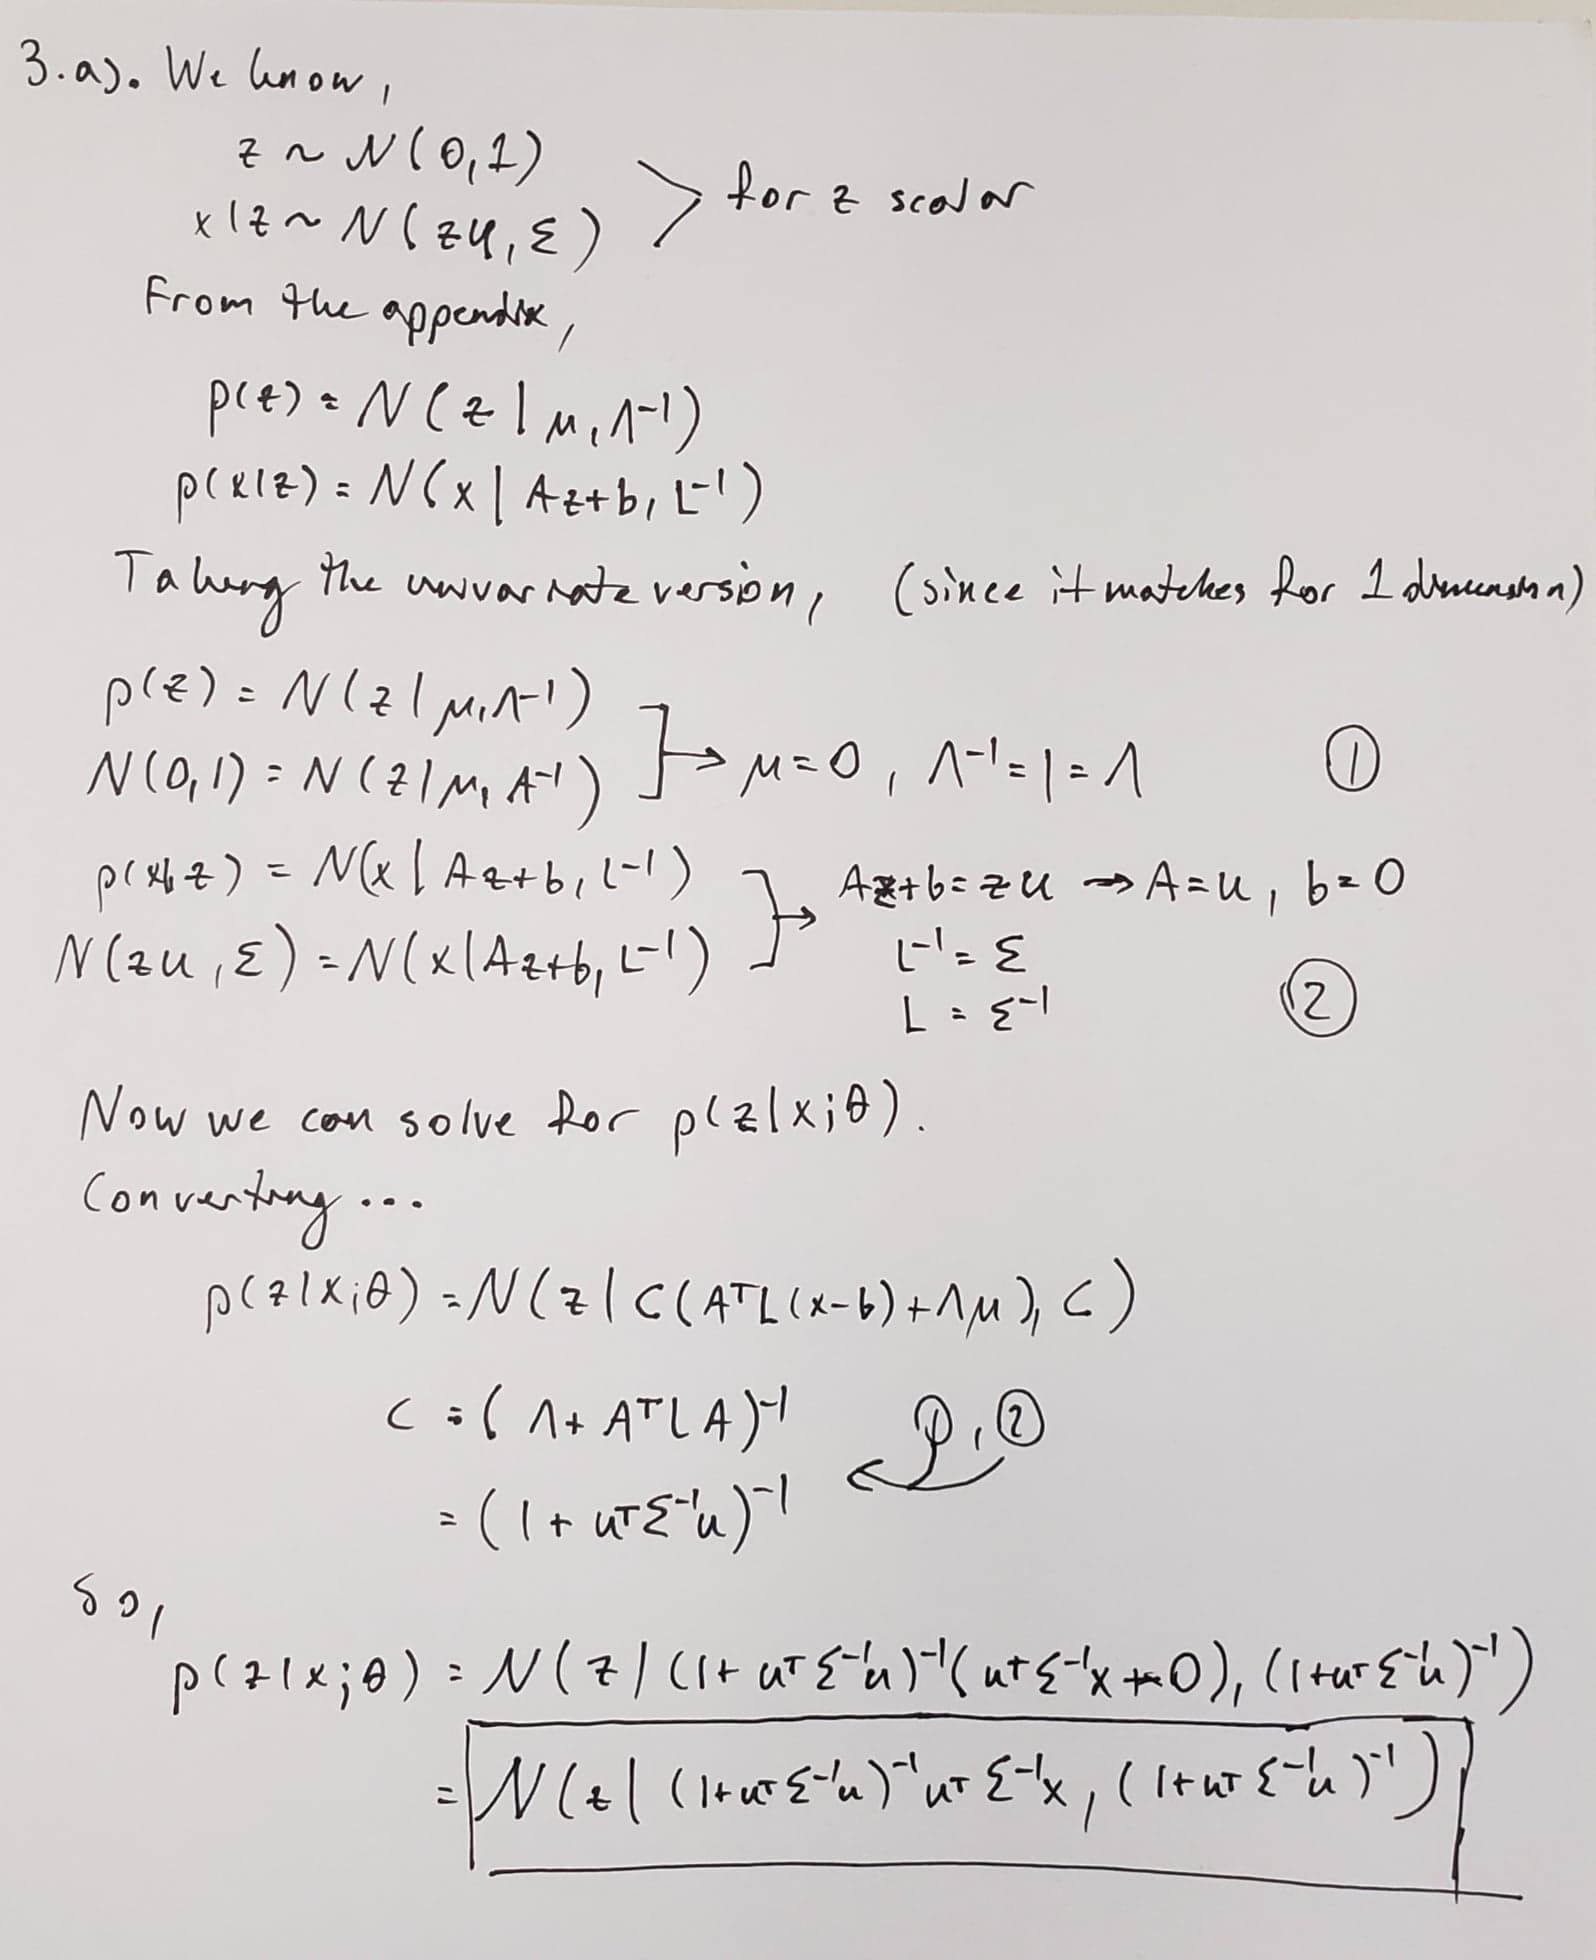 3.a). We know,
z ~ N(0,1)
x|z ~ N(zu, Σ) > for z scalar
From the appendix,
p(z) = N(z | μ, Λ⁻¹)
p(x|z) = N(x | Az+b, L⁻¹)
Taking the univariate version, (since it matches for 1 dimension)
p(z) = N(z | μ, Λ⁻¹)
N(0,1) = N(z | μ, Λ⁻¹) → μ=0, Λ⁻¹=1=Λ ①
p(x|z) = N(x | Az+b, L⁻¹) Az+b = zu → A=u, b=0
N(zu, Σ) = N(x | Az+b, L⁻¹) → L⁻¹ = Σ
L = Σ⁻¹ ②
Now we can solve for p(z|x;θ).
Converting...
p(z|x;θ) = N(z | C(AᵀL(x-b)+Λμ), C)
C = (Λ + AᵀLA)⁻¹ ①, ②
= (1 + uᵀΣ⁻¹u)⁻¹
So,
p(z|x;θ) = N(z | (1+uᵀΣ⁻¹u)⁻¹(uᵀΣ⁻¹x + 0), (1+uᵀΣ⁻¹u)⁻¹)
= N(z | (1+uᵀΣ⁻¹u)⁻¹uᵀΣ⁻¹x, (1+uᵀΣ⁻¹u)⁻¹)